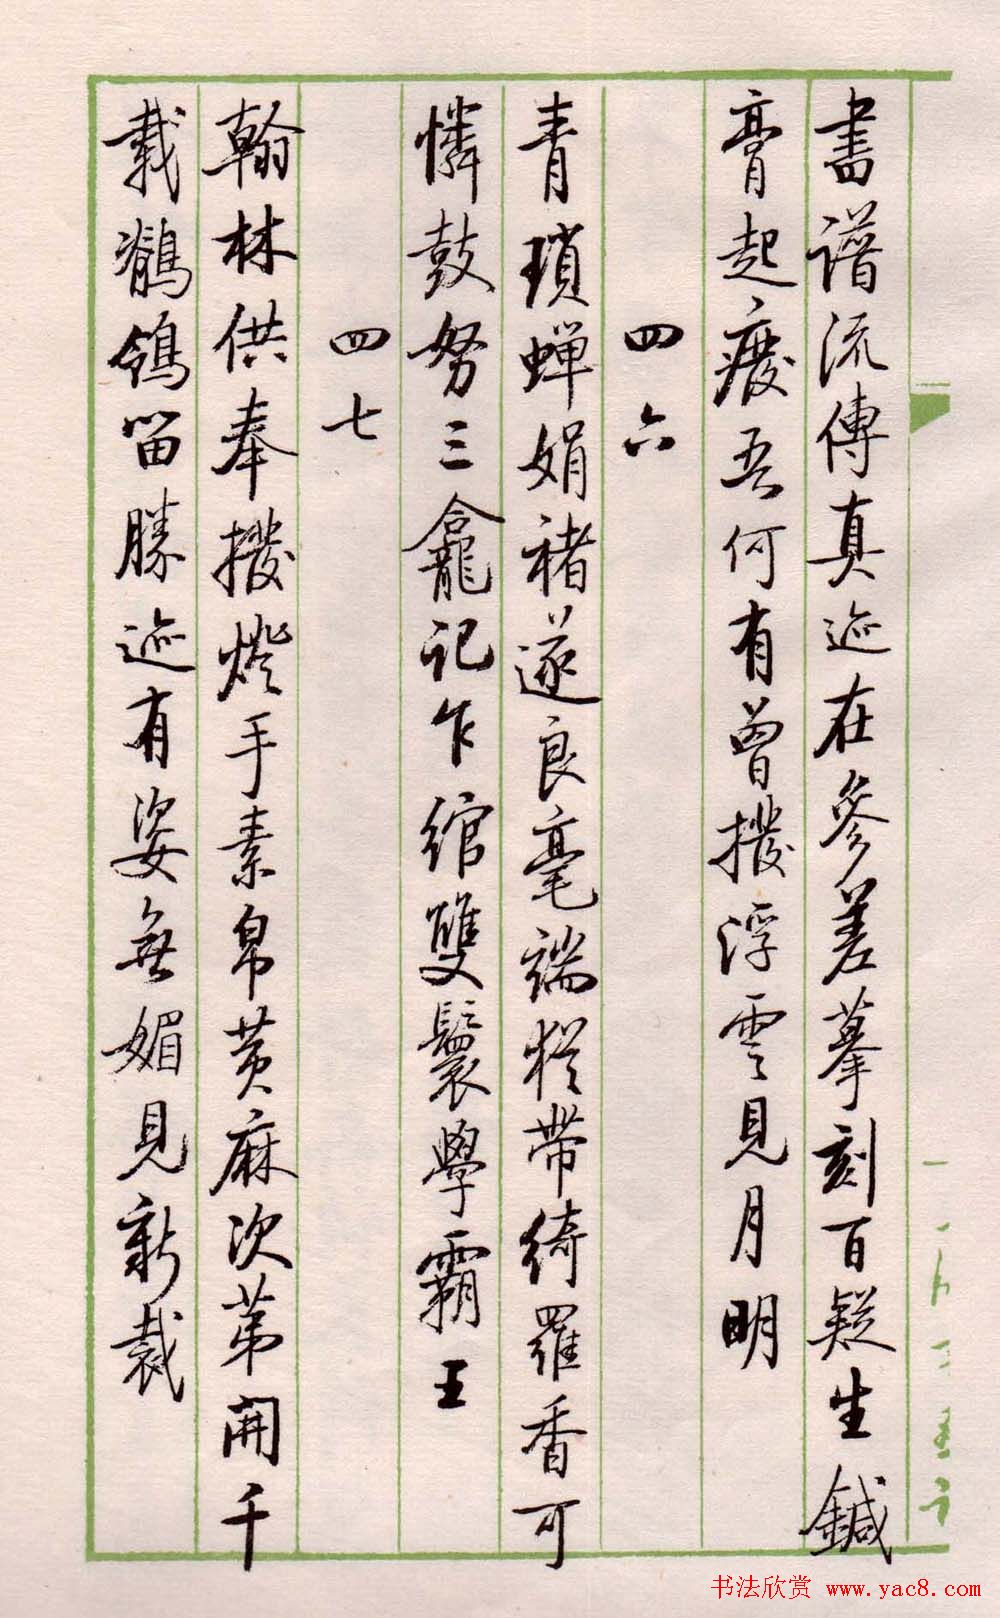 書譜流傳真迹在參差摹刻百疑生鍼
膏起癈吾何有曾撥浮雲見月明
四六
青瑣蟬娟褚遂良毫端猶帶綺羅香可
憐鼓努三龕記乍綰雙鬟學霸王
四七
翰林供奉撥燈手素帛黃麻次第開千
載鶺鴒留勝迹有姿無媚見新裁
书法欣赏 www.yac8.com